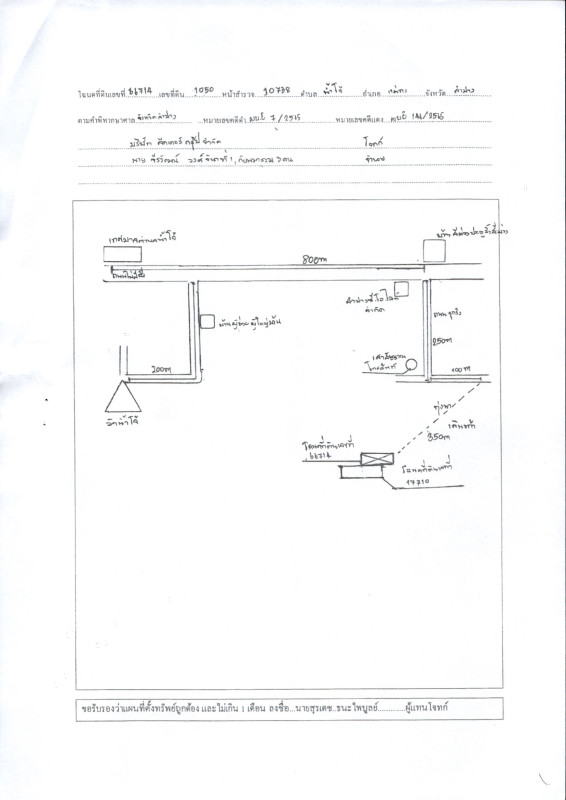 โฉนดที่ดินเลขที่ 66714 เลขที่ดิน 1050 หน้าสำรวจ 10738 ตำบล น้ำโจ้ อำเภอ แม่ทะ จังหวัด ลำปาง
ตามคำพิพากษาศาล จังหวัดลำปาง หมายเลขคดีดำ ผบE 7/2565 หมายเลขคดีแดง ผบE 144/2565
บริษัท จำกัด โจทก์
นาย ที่ 1, กับพวกรวม 3 คน จำเลย
เทศบาลตำบลน้ำโจ้
800m
บ้านผู้ช่วยผู้ใหญ่บ้าน
จำกัด
ถนนลูกรัง
250m
เสาสัญญาณ
โทรศัพท์
200m
100m
วัดน้ำโจ้
ทุ่งนา
เดินเท้า
350m
โฉนดที่ดินเลขที่
66714
โฉนดที่ดินเลขที่
17710
ขอรับรองว่าแผนที่ตั้งทรัพย์ถูกต้อง และไม่เกิน 1 เดือน ลงชื่อ...นายสุรเดช..ธนะไพบูลย์............ผู้แทนโจทก์